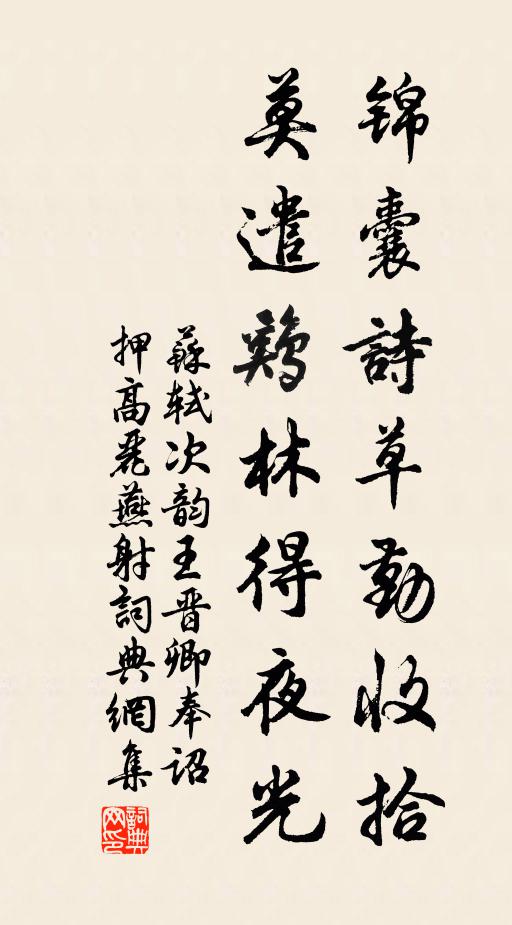 锦囊詩草勤收拾
莫遣鷄林得夜光
蘇軾次韵王晋卿奉詔
押高麗燕射詞典網集
詞典
网印